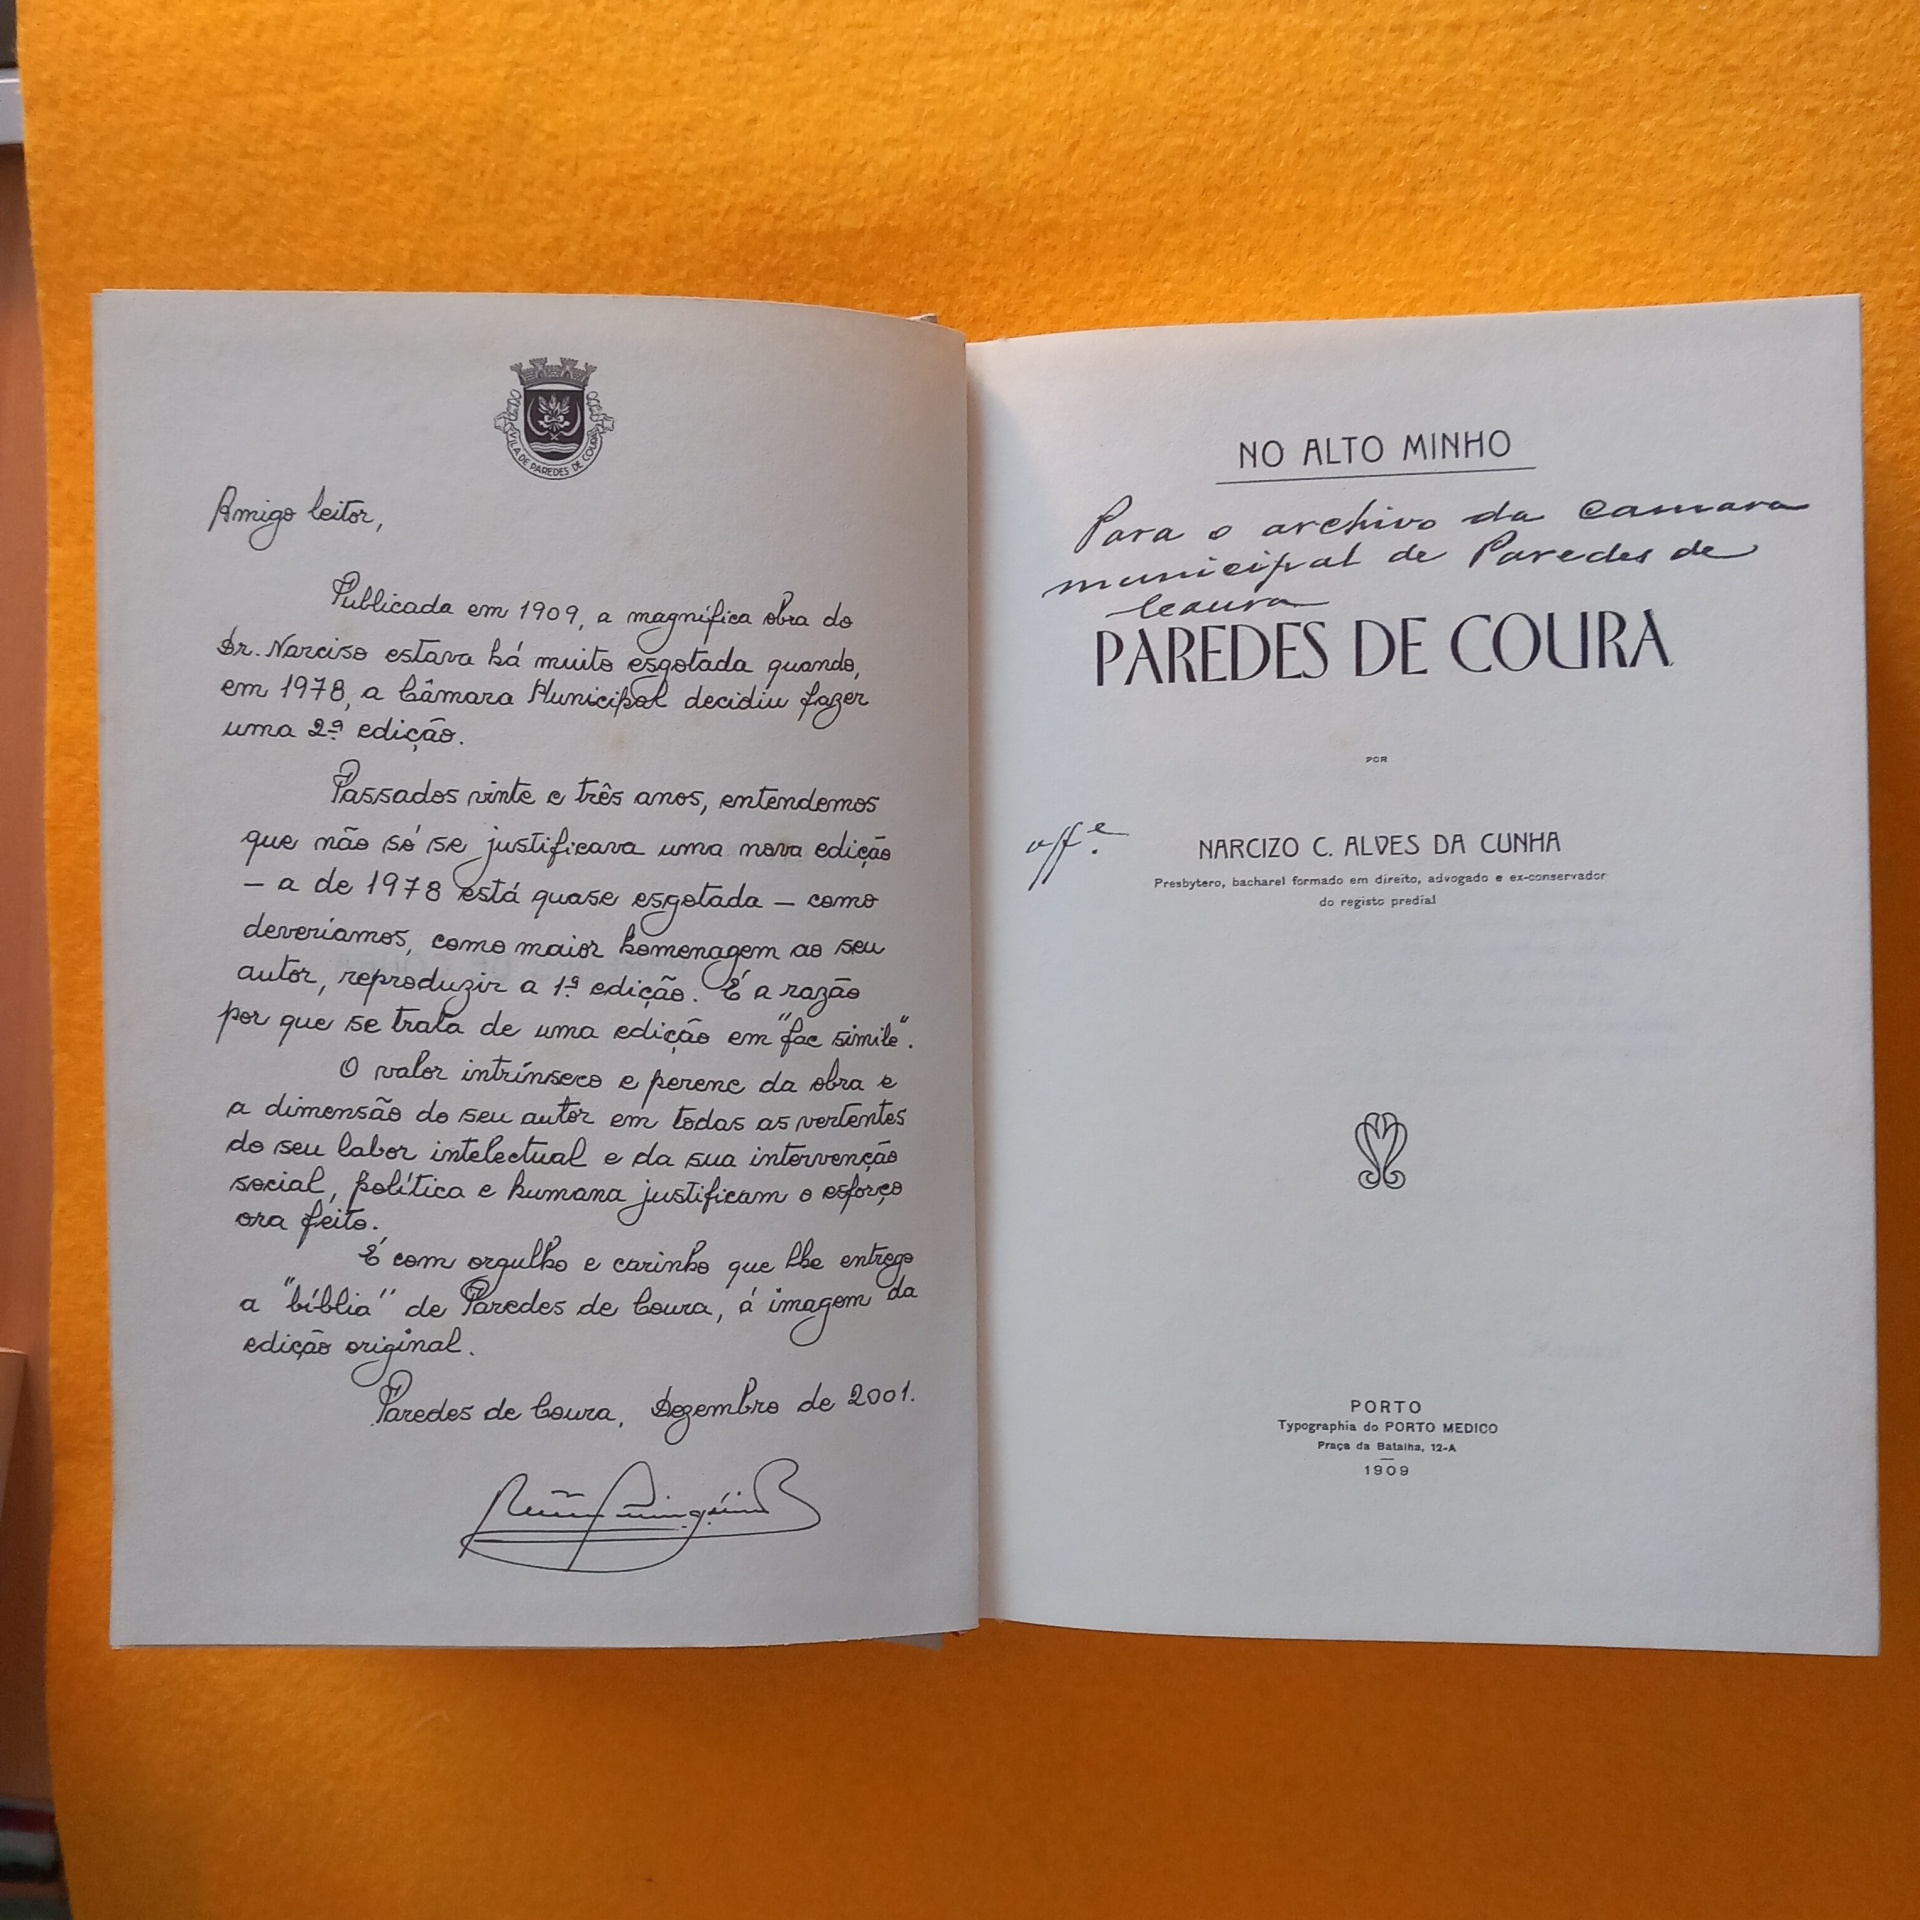 VILA DE PAREDES DE COURA
Amigo leitor,
Publicada em 1909, a magnífica obra do
Dr. Narciso estava há muito esgotada quando,
em 1978, a Câmara Municipal decidiu fazer
uma 2ª edição.
Passados vinte e três anos, entendemos
que não só se justificava uma nova edição
— a de 1978 está quase esgotada — como
deveríamos, como maior homenagem ao seu
autor, reproduzir a 1ª edição. É a razão
por que se trata de uma edição em "fac simile".
O valor intrínseco e perene da obra e
a dimensão do seu autor em todas as vertentes
do seu labor intelectual e da sua intervenção
social, política e humana justificam o esforço
ora feito.
É com orgulho e carinho que lhe entrego
a "bíblia" de Paredes de Coura, á imagem da
edição original.
Paredes de Coura, Dezembro de 2001.
NO ALTO MINHO
Para o archivo da Camara
municipal de Paredes de
Coura
PAREDES DE COURA
POR
off.e
NARCIZO C. ALVES DA CUNHA
Presbytero, bacharel formado em direito, advogado e ex-conservador
do registo predial
PORTO
Typographia do PORTO MEDICO
Praça da Batalha, 12-A
1909